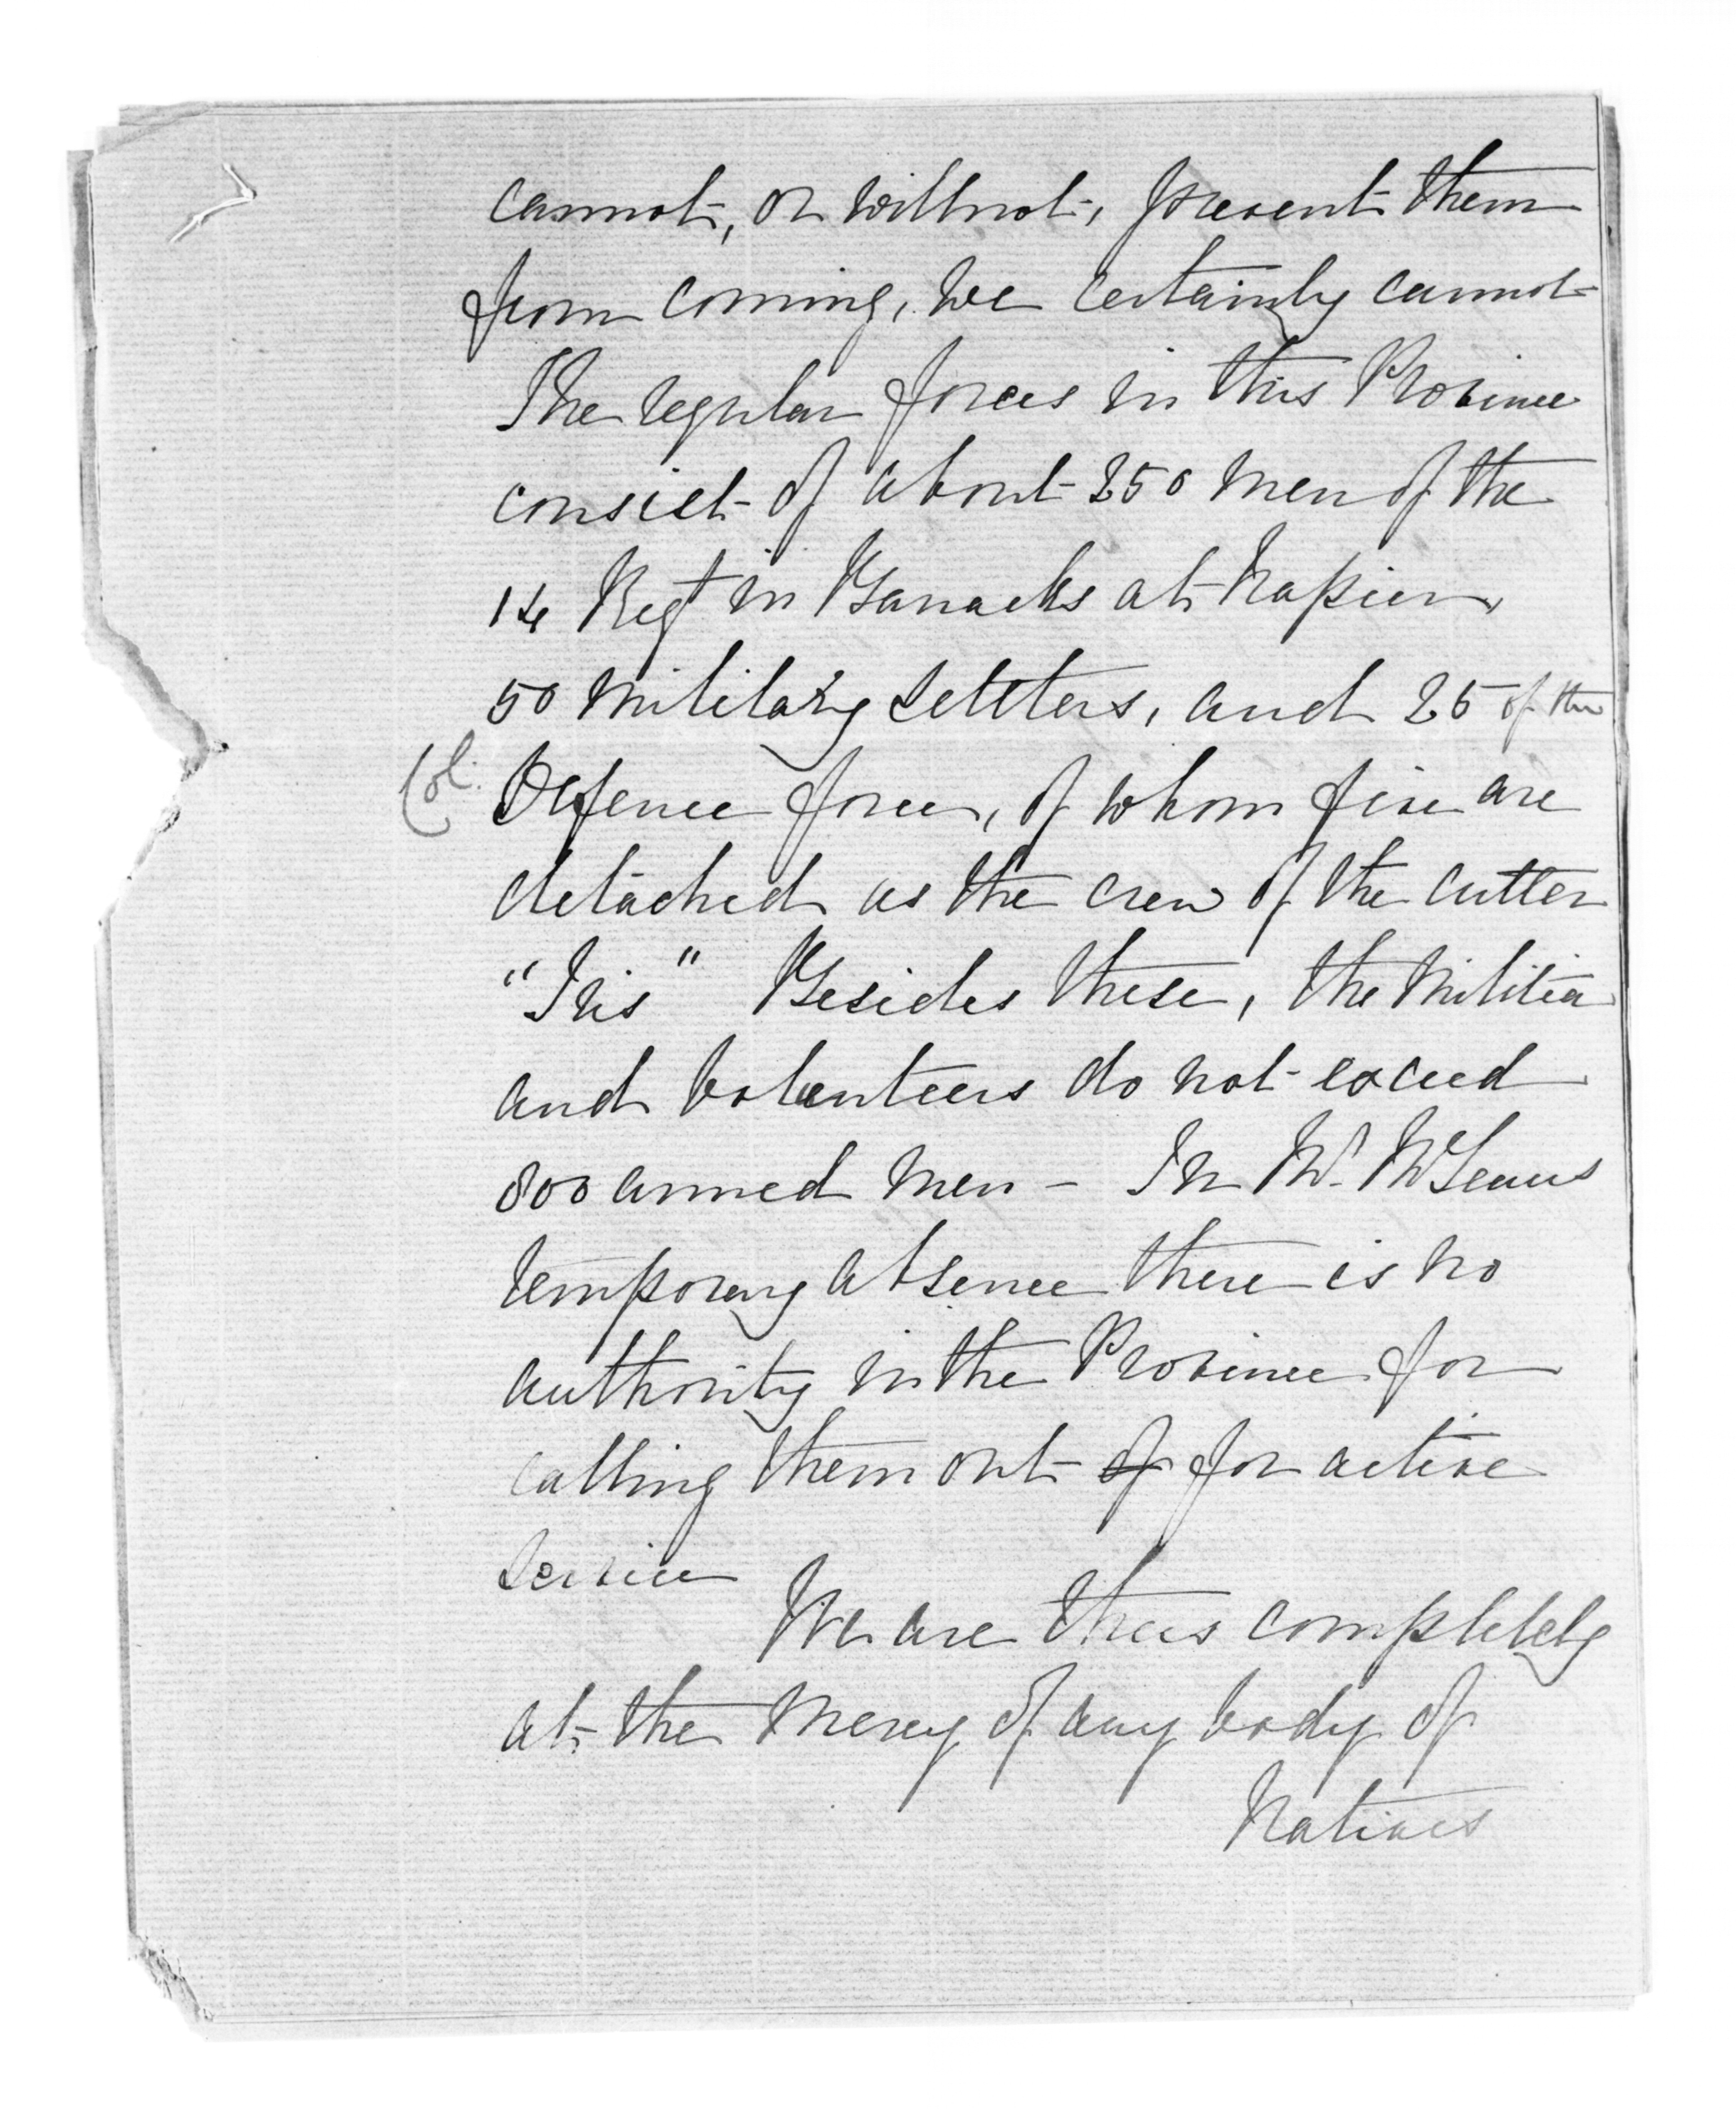 cannot, or will not, prevent them
from coming, we certainly cannot
The regular forces in this Province
consist of about 250 men of the
14 Regt in Barracks at Napier,
50 Military Settlers, and 25 of the
Col. Defence force, of whom five are
detached as the crew of the cutter
"Iris" Besides these, the Militia
and Volunteers do not exceed
800 armed men - In Mr. McLeans
temporary absence there is no
authority in the Province for
calling them out of for active
service
We are thus completely
at the mercy of any body of
Natives